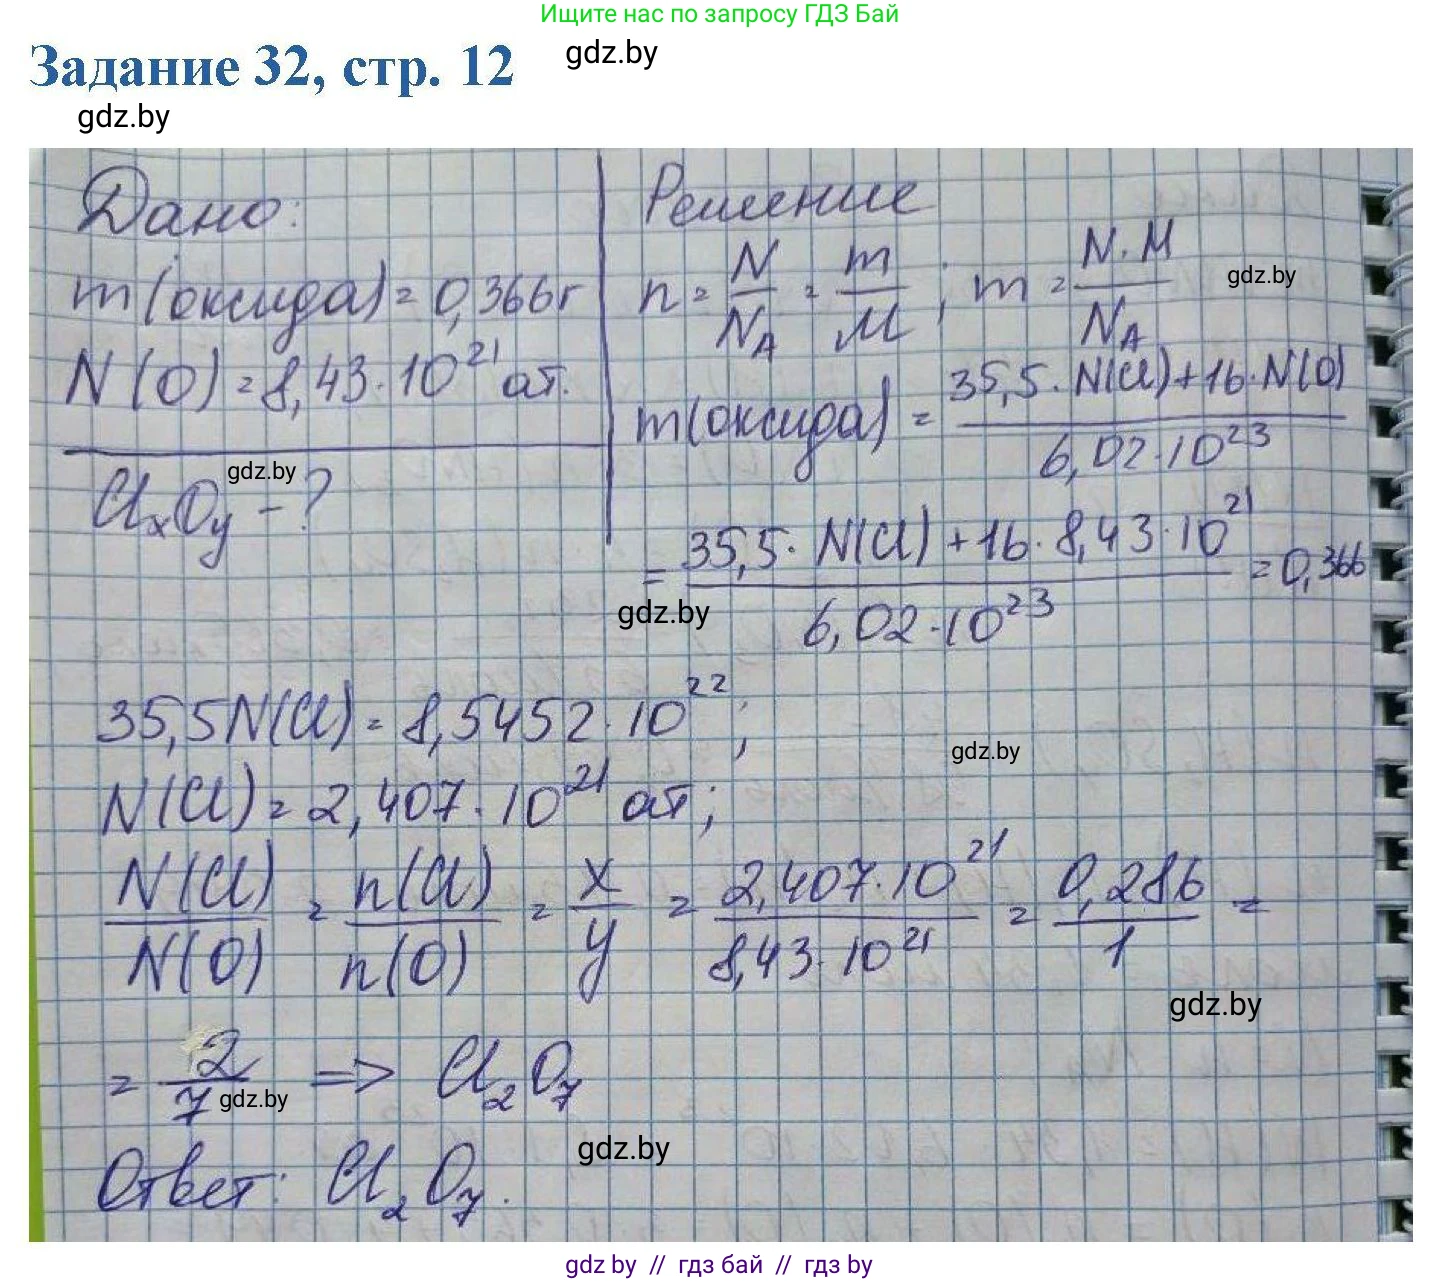 Ищите нас по запросу ГДЗ Бай
Задание 32, стр. 12
gdz.by
gdz.by
Дано:
m(оксида) = 0,366г
N(O) = 8,43·10²¹ ат.
gdz.by
ClₓOᵧ - ?
Решение
n = N/N_A = m/M ; m = N·M/N_A
gdz.by
m(оксида) = (35,5·N(Cl)+16·N(O))/(6,02·10²³)
= (35,5·N(Cl)+16·8,43·10²¹)/(6,02·10²³) = 0,366
gdz.by
35,5N(Cl) = 8,5452·10²²;
gdz.by
N(Cl) = 2,407·10²¹ ат;
N(Cl)/N(O) = n(Cl)/n(O) = x/y = (2,407·10²¹)/(8,43·10²¹) = 0,286/1 =
gdz.by
= 2/7 => Cl₂O₇
gdz.by
gdz.by
Ответ: Cl₂O₇.
gdz.by // гдз бай // гдз by